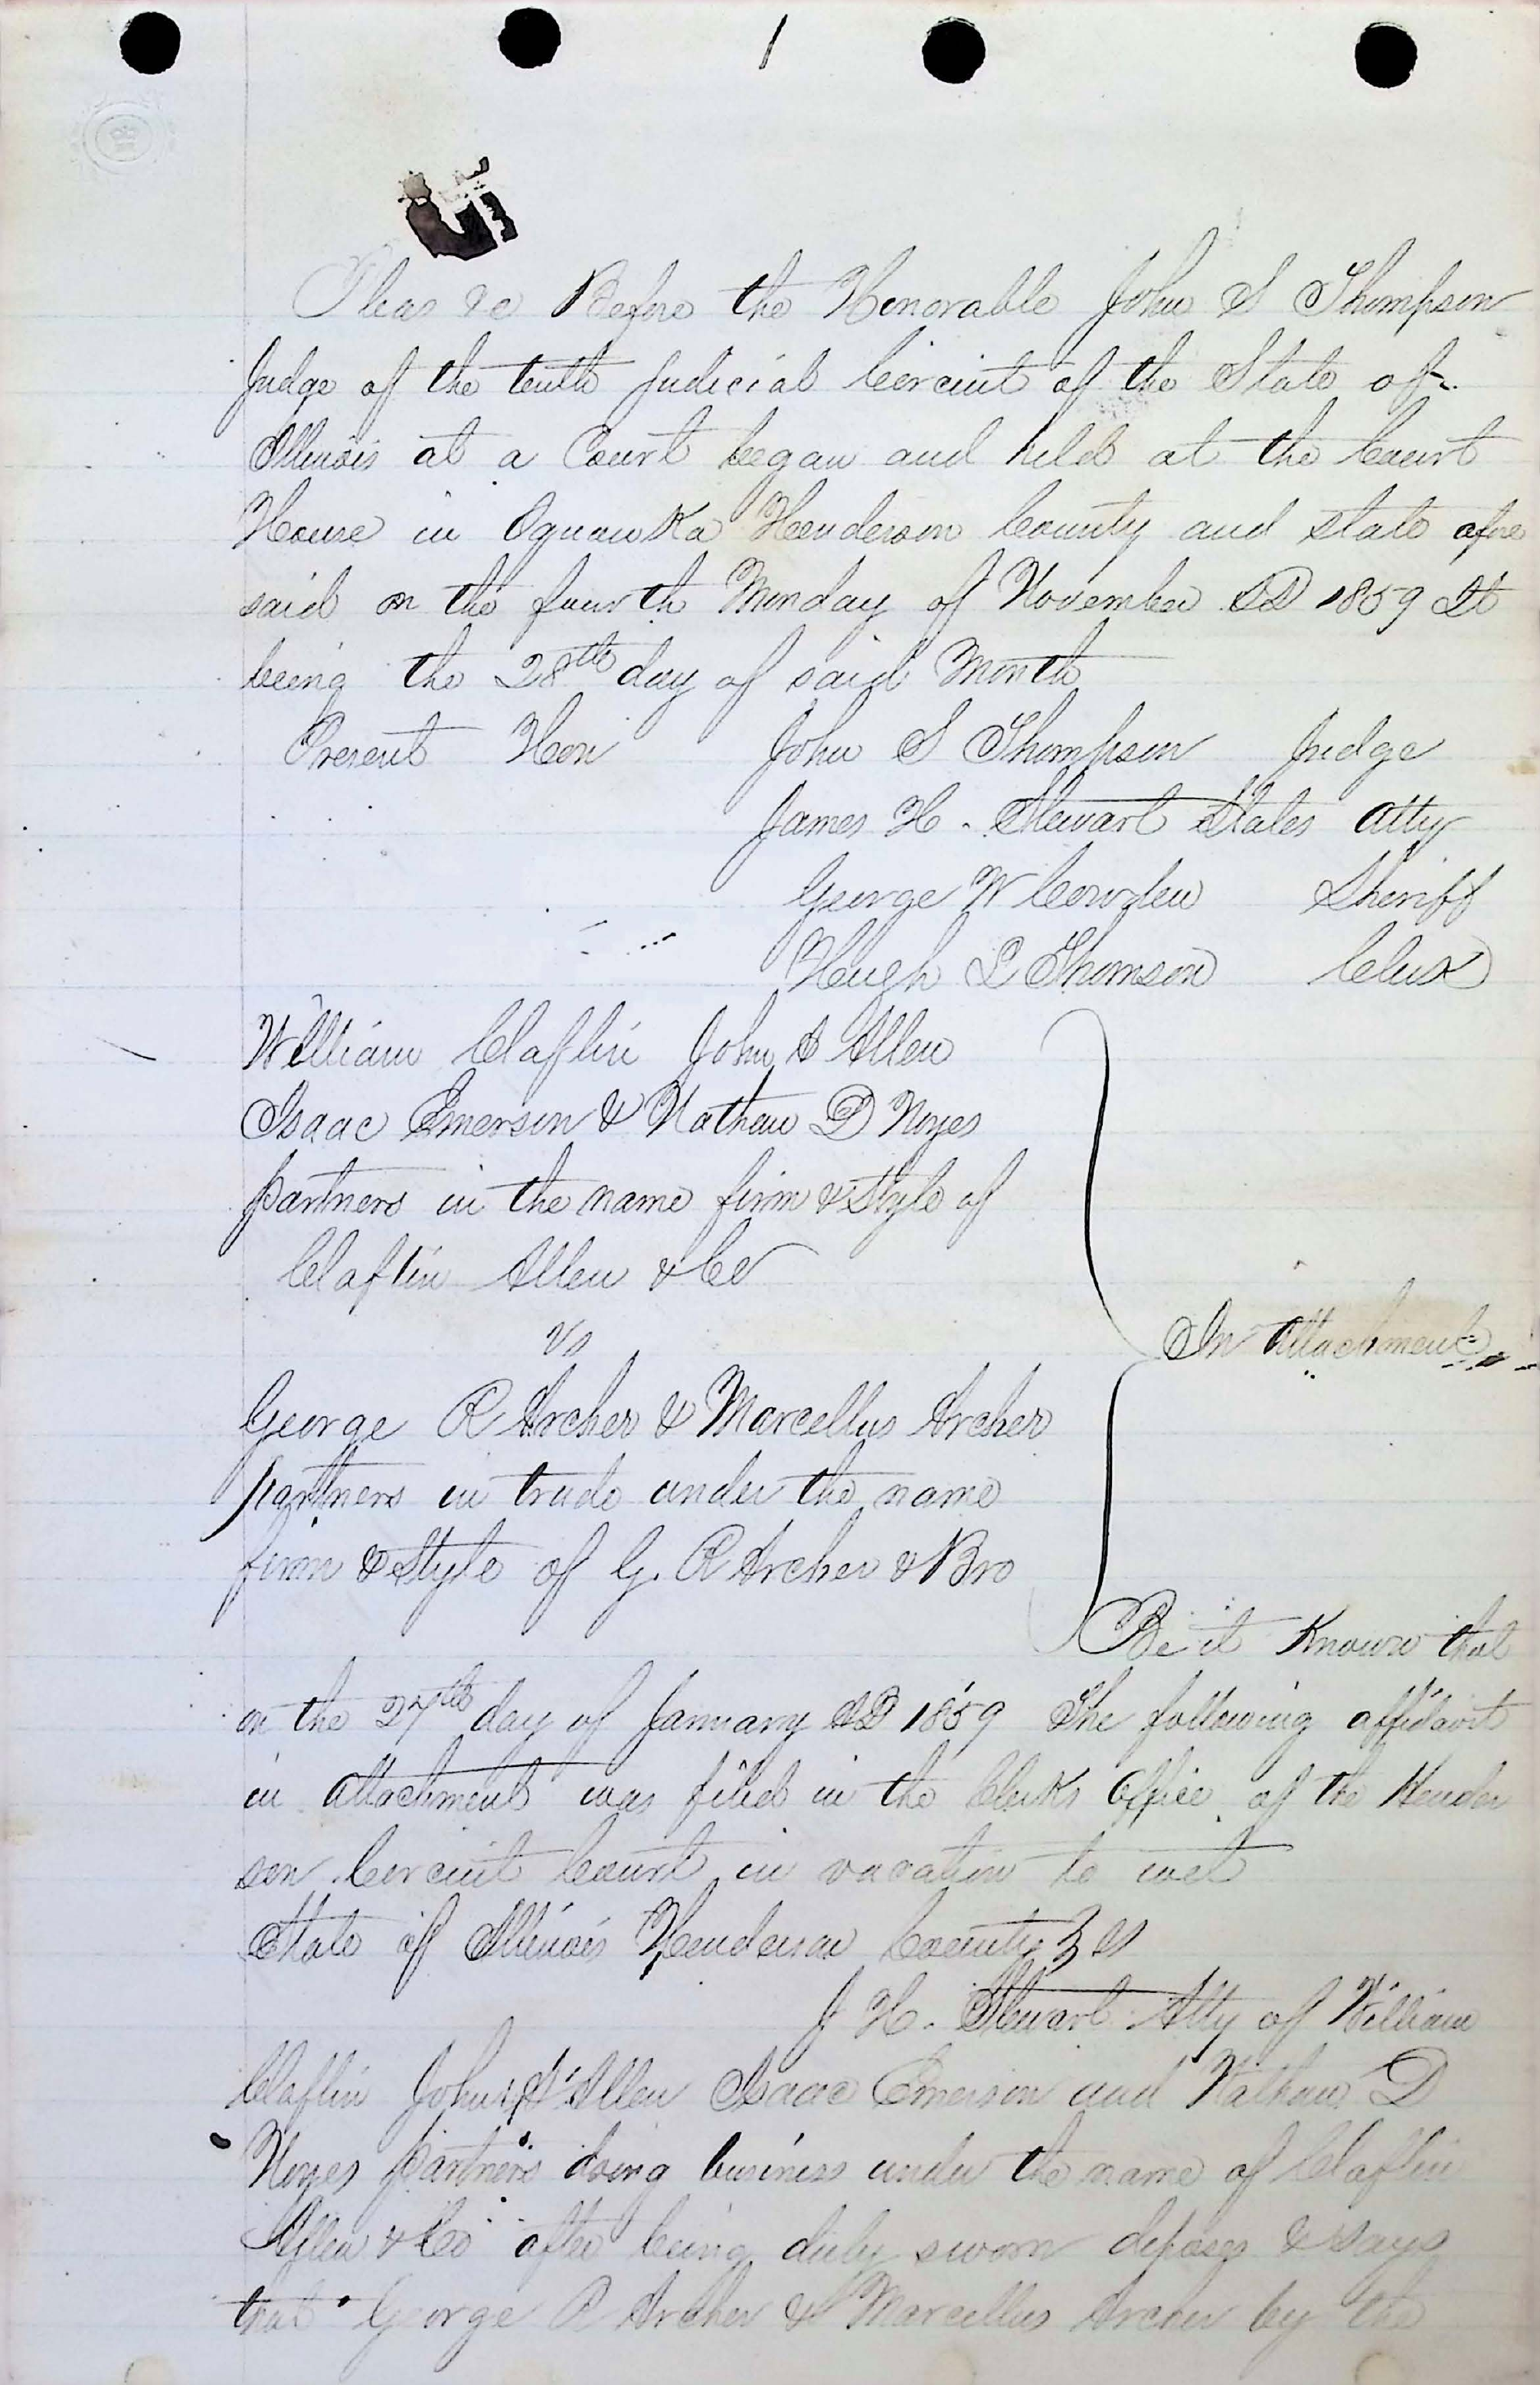 1
Pleas &c Before the Honorable John S Thompson
Judge of the tenth Judicial Circuit of the State of
Illinois at a Court began and held at the Court
House in Oquawka Henderson County and state afore
said on the fourth Monday of November AD 1859 It
being the 28th day of said Month
Present Hon John S Thompson Judge
James H. Stewart States Atty
George W Cowden Sheriff
Hugh L Thomson Clerk
William Claflin John A Allen
Isaac Emerson & Nathan D Noyes
partners in the name firm & Style of
Claflin Allen & Co
vs
In Attachment
George R Archer & Marcellus Archer
partners in trade under the name
firm & Style of G. R Archer & Bro
Be it Known that
on the 27th day of January AD 1859 The following affidavit
in attachment was filed in the Clerks Office of the Hender
son Circuit Court in vacation to wit
State of Illinois Henderson County } ss
J H. Stewart Atty of William
Claflin John A Allen Isaac Emerson and Nathan D
Noyes partners doing business under the name of Claflin
Allen & Co after being duly sworn deposes & says
that George R Archer & Marcellus Archer by the